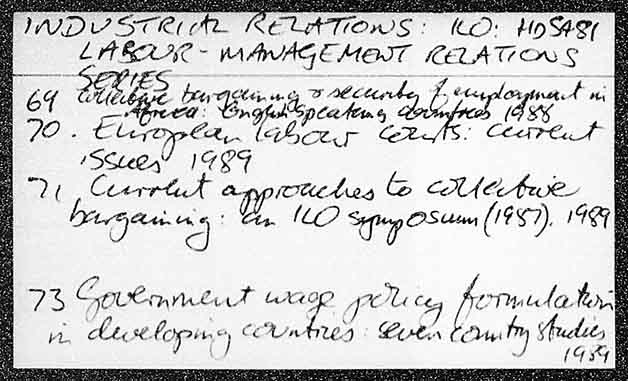 INDUSTRIAL RELATIONS: ILO: HD5A81
LABOUR-MANAGEMENT RELATIONS
SERIES
69 collective bargaining & security of employment in
Africa: English speaking countries 1988
70. European labour courts: current
issues 1989
71 Current approaches to collective
bargaining: an ILO symposium (1987). 1989
73 Government wage policy formulation
in developing countries: seven country studies
1989